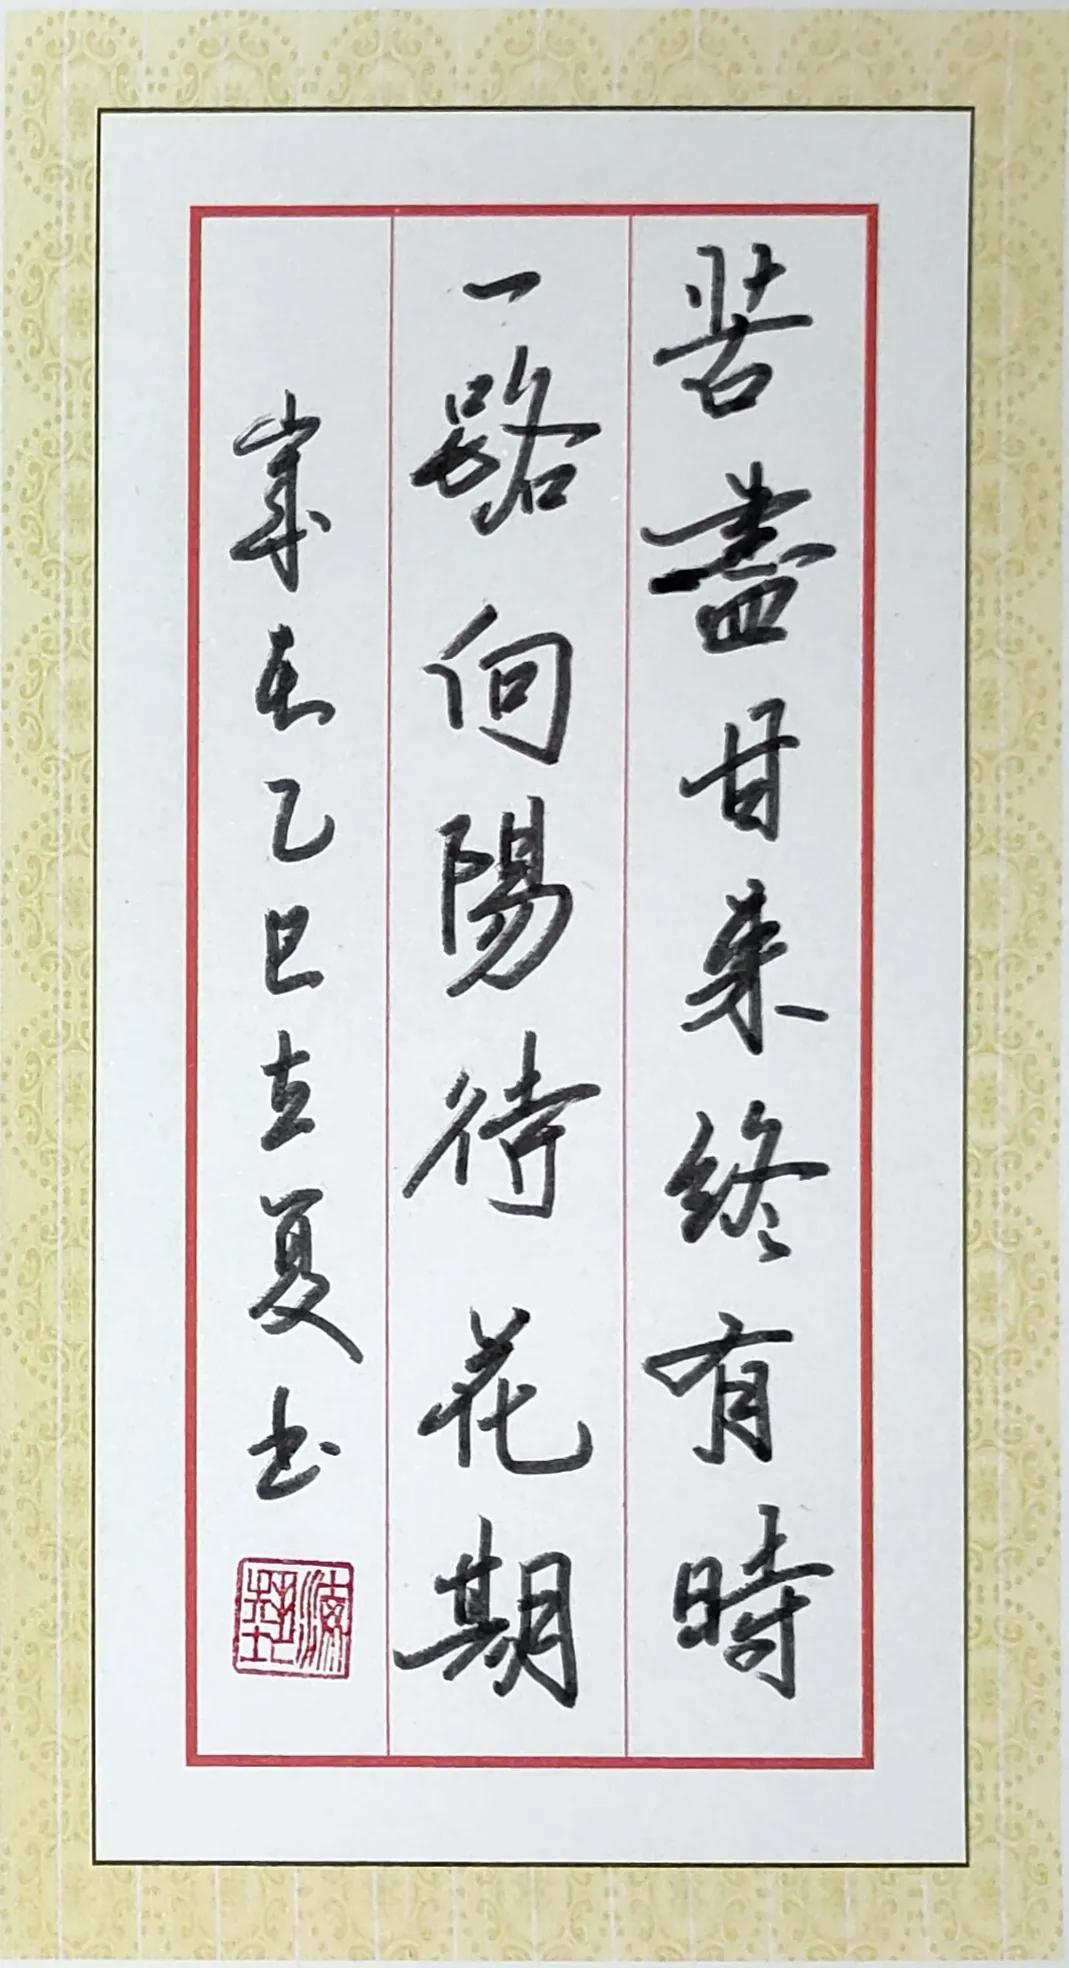 苦盡甘来終有時
一路向陽待花期
乙巳立夏书